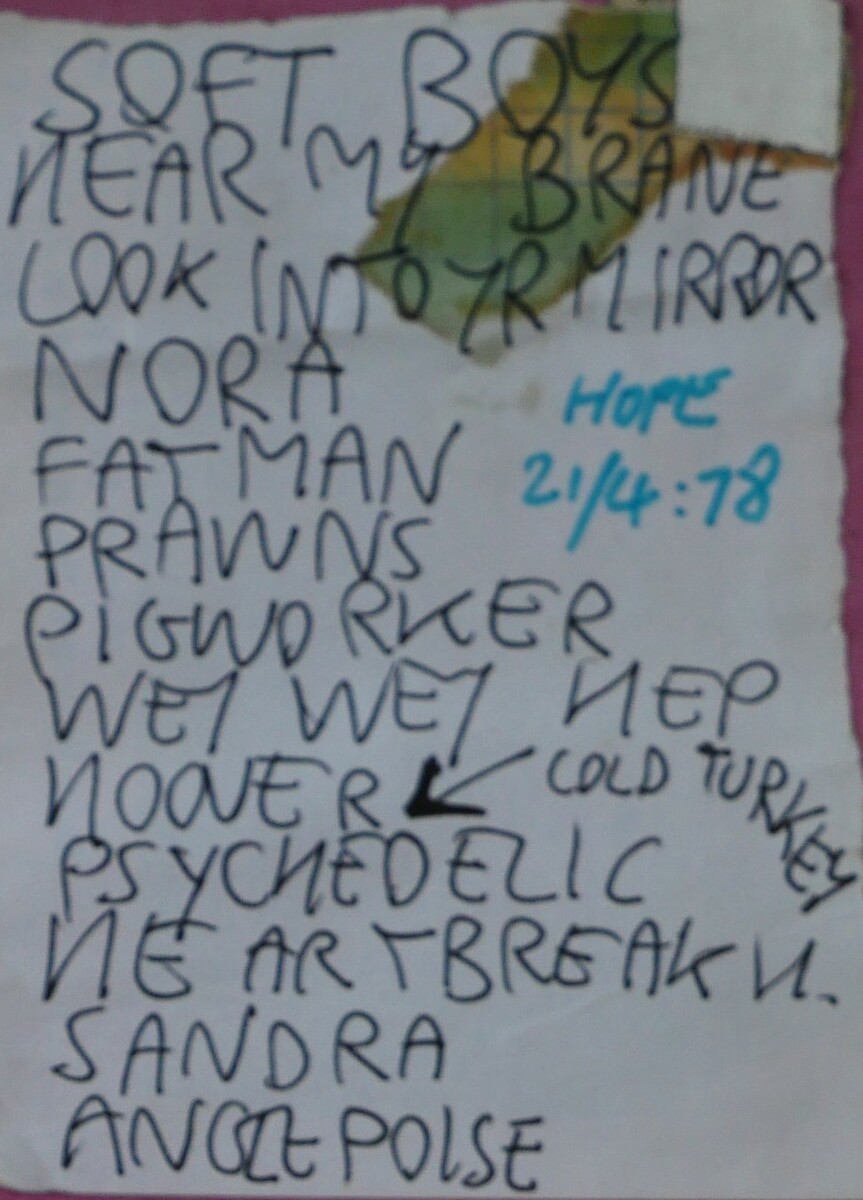 SOFT BOYS
HEAR MY BRANE
LOOK INTO YR MIRROR
NORA
HOPE
FATMAN
21/4:78
PRAWNS
PIGWORKER
WEY WEY HEP
HOOVER
COLD TURKEY
PSYCHEDELIC
HEARTBREAK H.
SANDRA
ANGLEPOISE